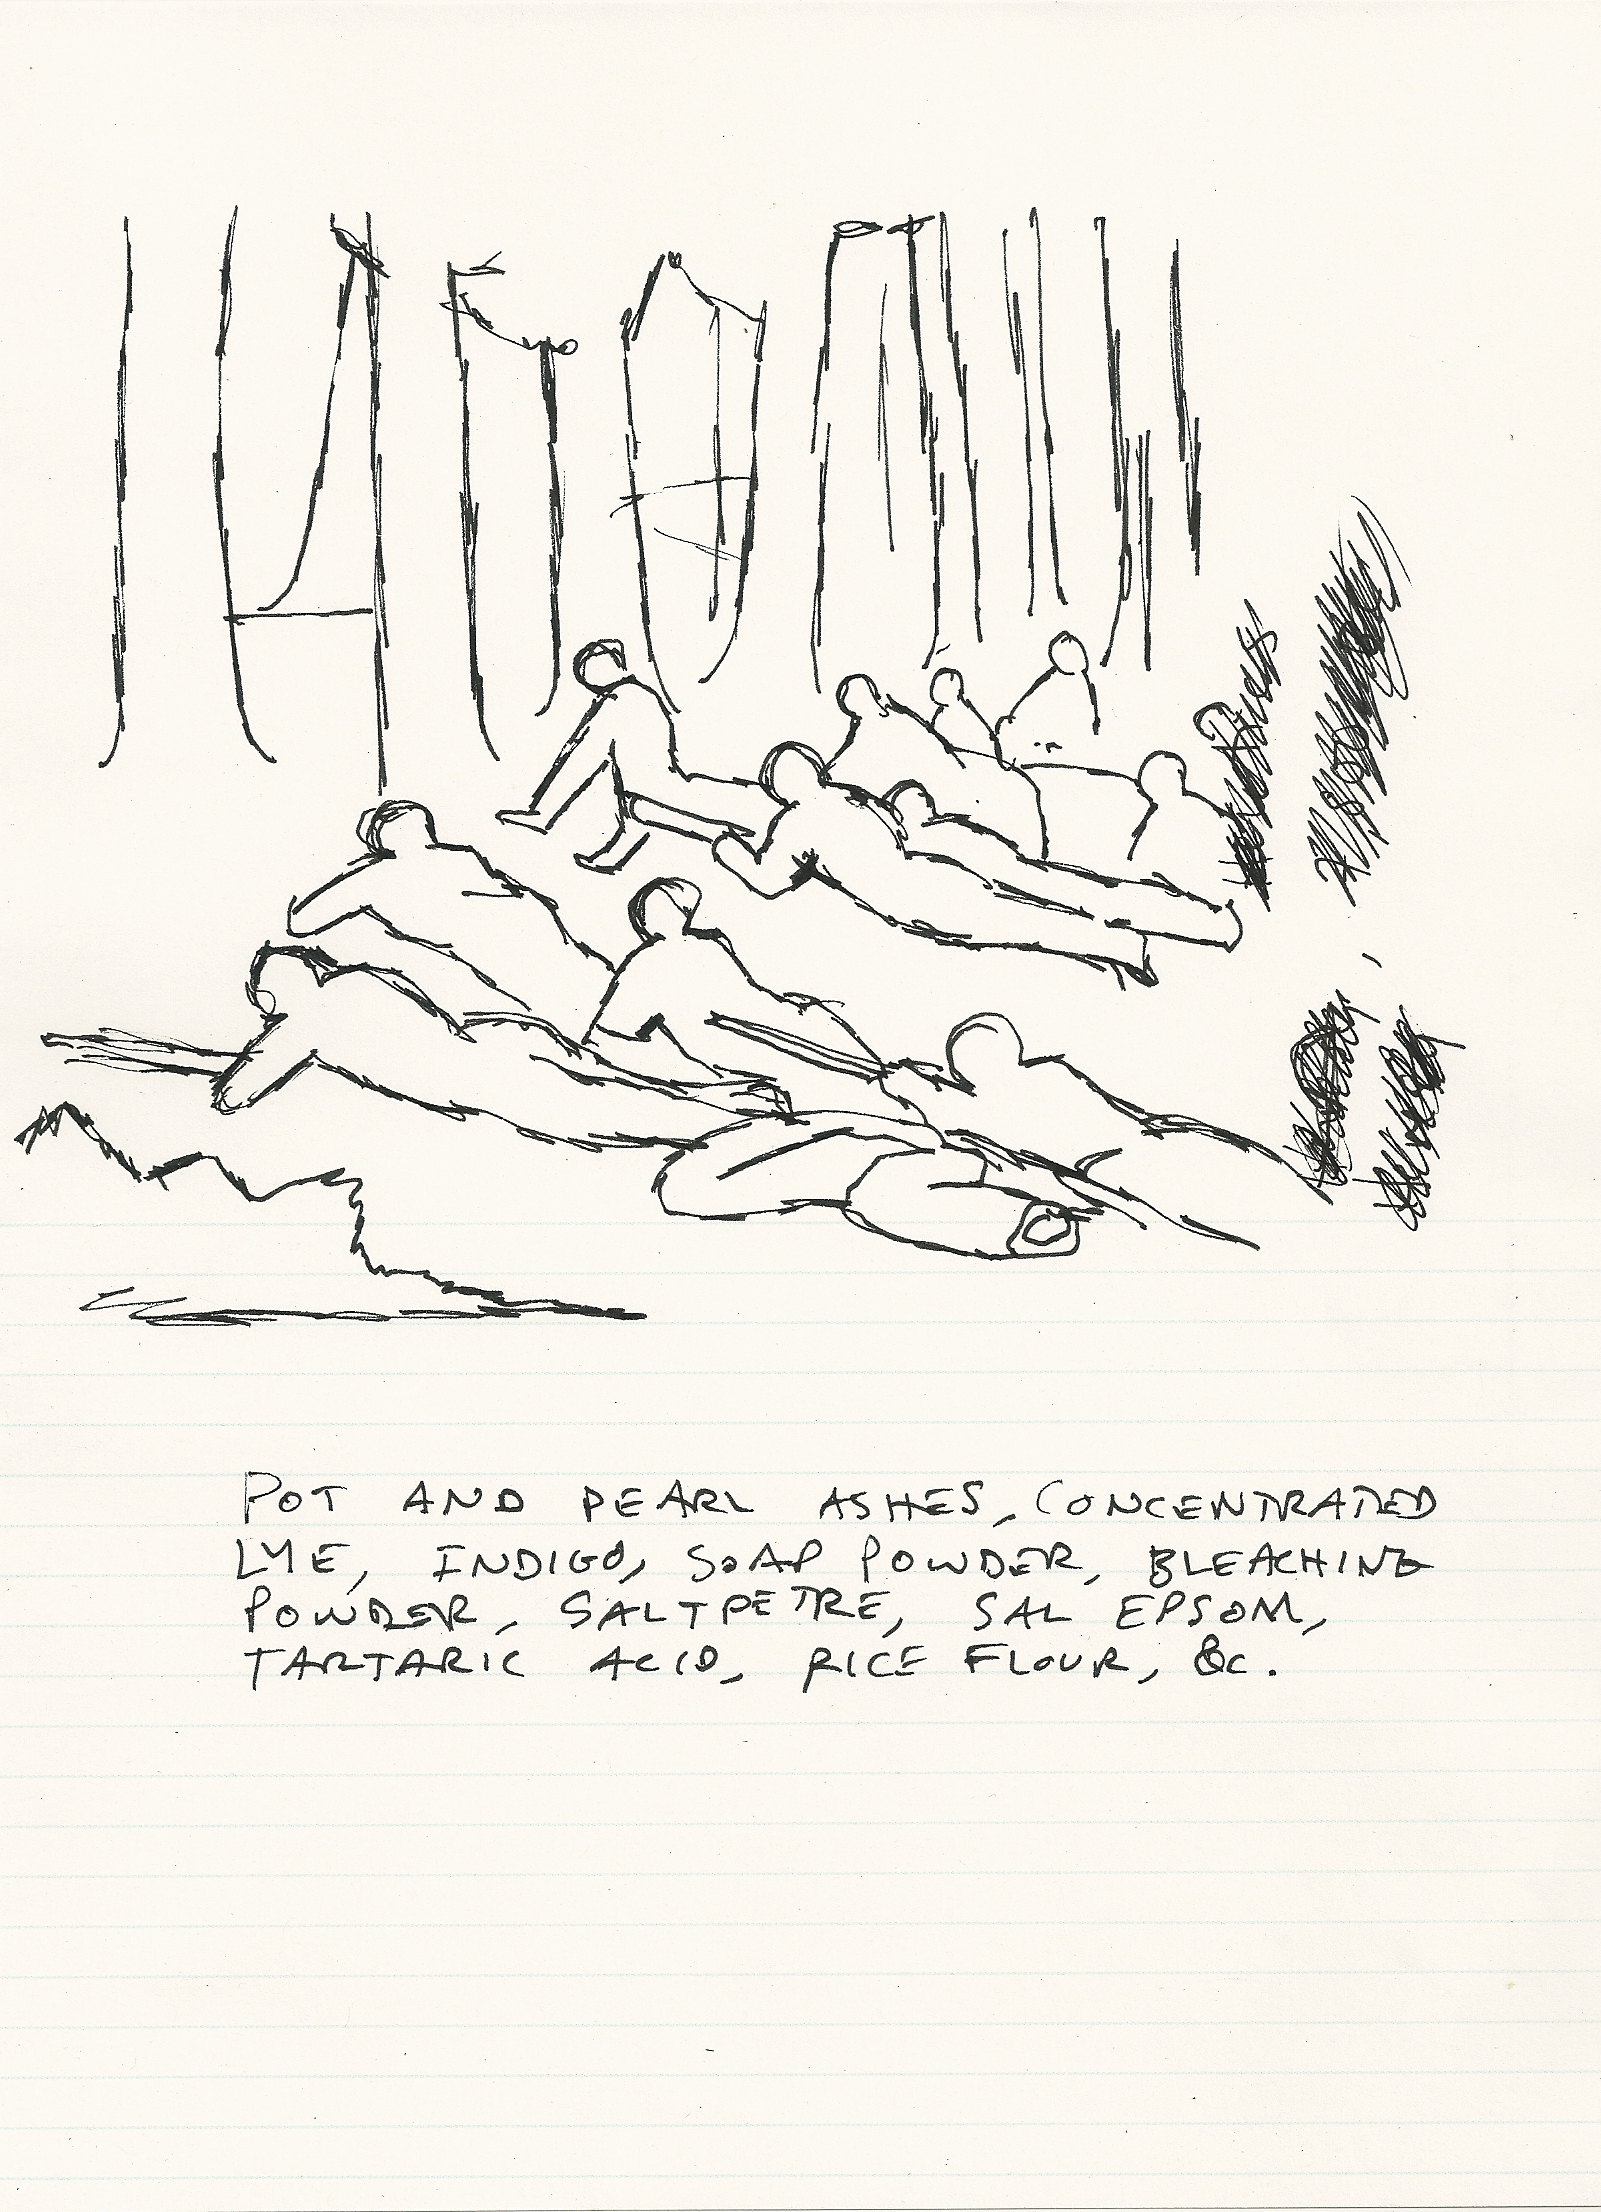 POT AND PEARL ASHES, CONCENTRATED
LYE, INDIGO, SOAP POWDER, BLEACHING
POWDER, SALTPETRE, SAL EPSOM,
TARTARIC ACID, RICE FLOUR, &C.